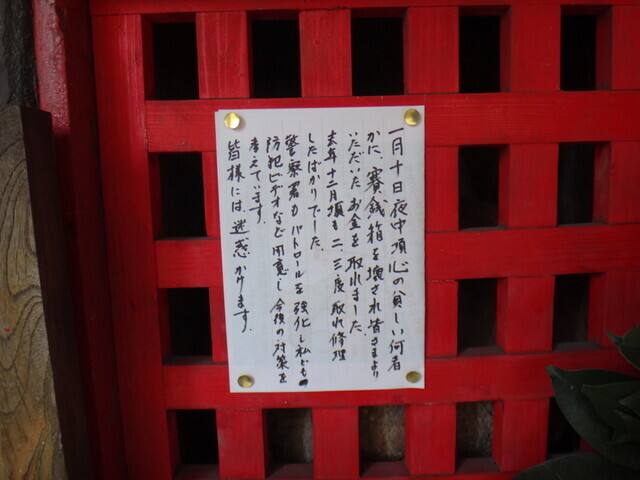 一月十日夜中頃心の貧しい何者
かに、賽銭箱を壊され皆さまより
いただいたお金を取れました。
去年十二月頃も二、三度取れ修理
したばかりでした。
警察署もパトロールを強化し私ども
防犯ビデオなど用意し今後の対策を
考えています。
皆様には迷惑かけます。